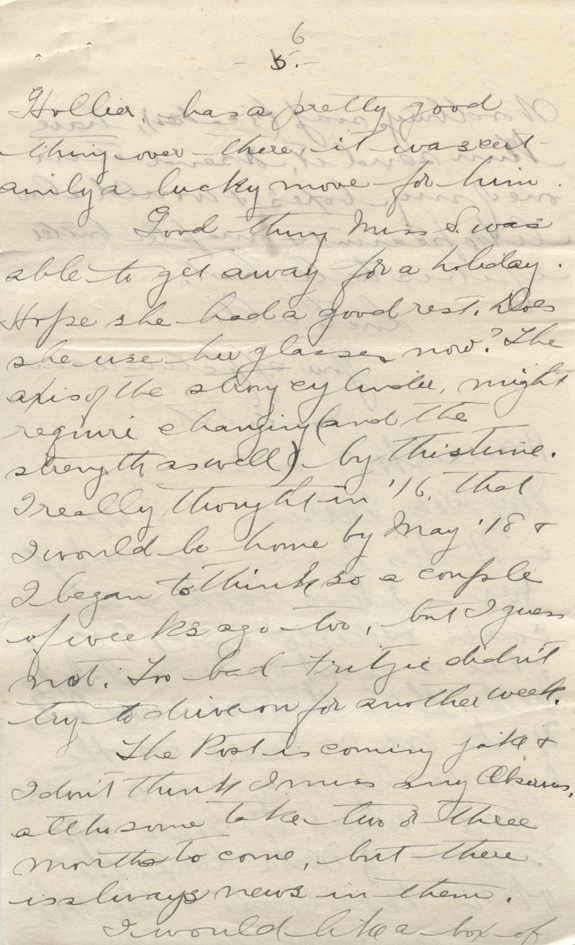 6
- 5. -
Hollier, has a pretty good
thing over there, it was cert
ainly a lucky move for him.
Good thing Miss S. was
able to get away for a holiday.
Hope she had a good rest. Does
she use her glasses now? The
axis of the strong cylinder, might
require changing (and the
strength as well) by this time.
I really thought in '16, that
I would be home by May '18 &
I began to think so a couple
of weeks ago too, but I guess
not. Too bad Fritzie didn't
try to drive on for another week.
The Post is coming jake &
I don't think I miss any
altho some take two & three
months to come, but there
is always news in them.
I would like a box of